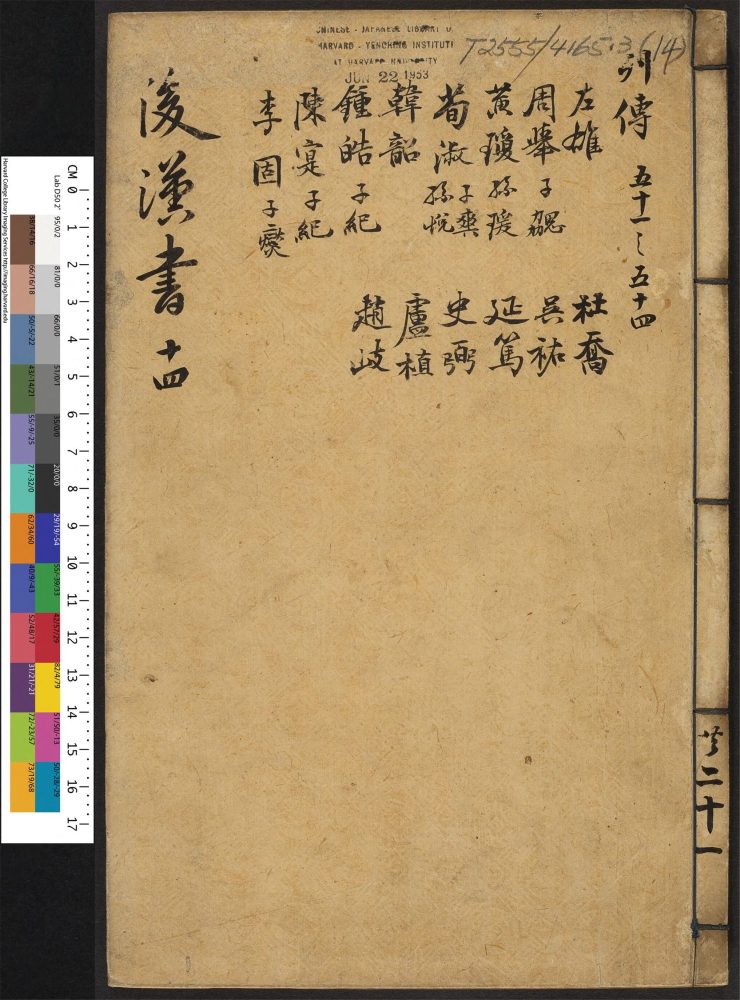 CHINESE - JAPANESE LIBRARY O
HARVARD - YENCHING INSTITUTE
AT HARVARD UNIVERSITY
JUN 22 1953
T2555/4165.3(14)
列傳 五十一之五十四
左雄
周舉 子勰
黃瓊 孫琬
荀淑 子爽 孫悅
韓韶
鍾皓 子紀
陳寔 子紀
李固 子燮
杜喬
吳祐
延篤
史弼
盧植
趙岐
後漢書 十四
共二十一
CM 0 1 2 3 4 5 6 7 8 9 10 11 12 13 14 15 16 17
Harvard College Library Imaging Services http://imaging.harvard.edu
Lab D50 2°
95/0/2
81/0/0
66/0/0
51/0/1
35/0/0
20/0/0
29/19/-54
55/-39/33
42/57/29
82/4/79
51/50/-13
50/-28/-29
38/14/16
66/16/18
50/-5/-22
43/-14/21
55/-9/-25
71/-32/0
62/34/60
40/9/-43
52/48/17
31/21/-21
72/-23/57
73/19/68